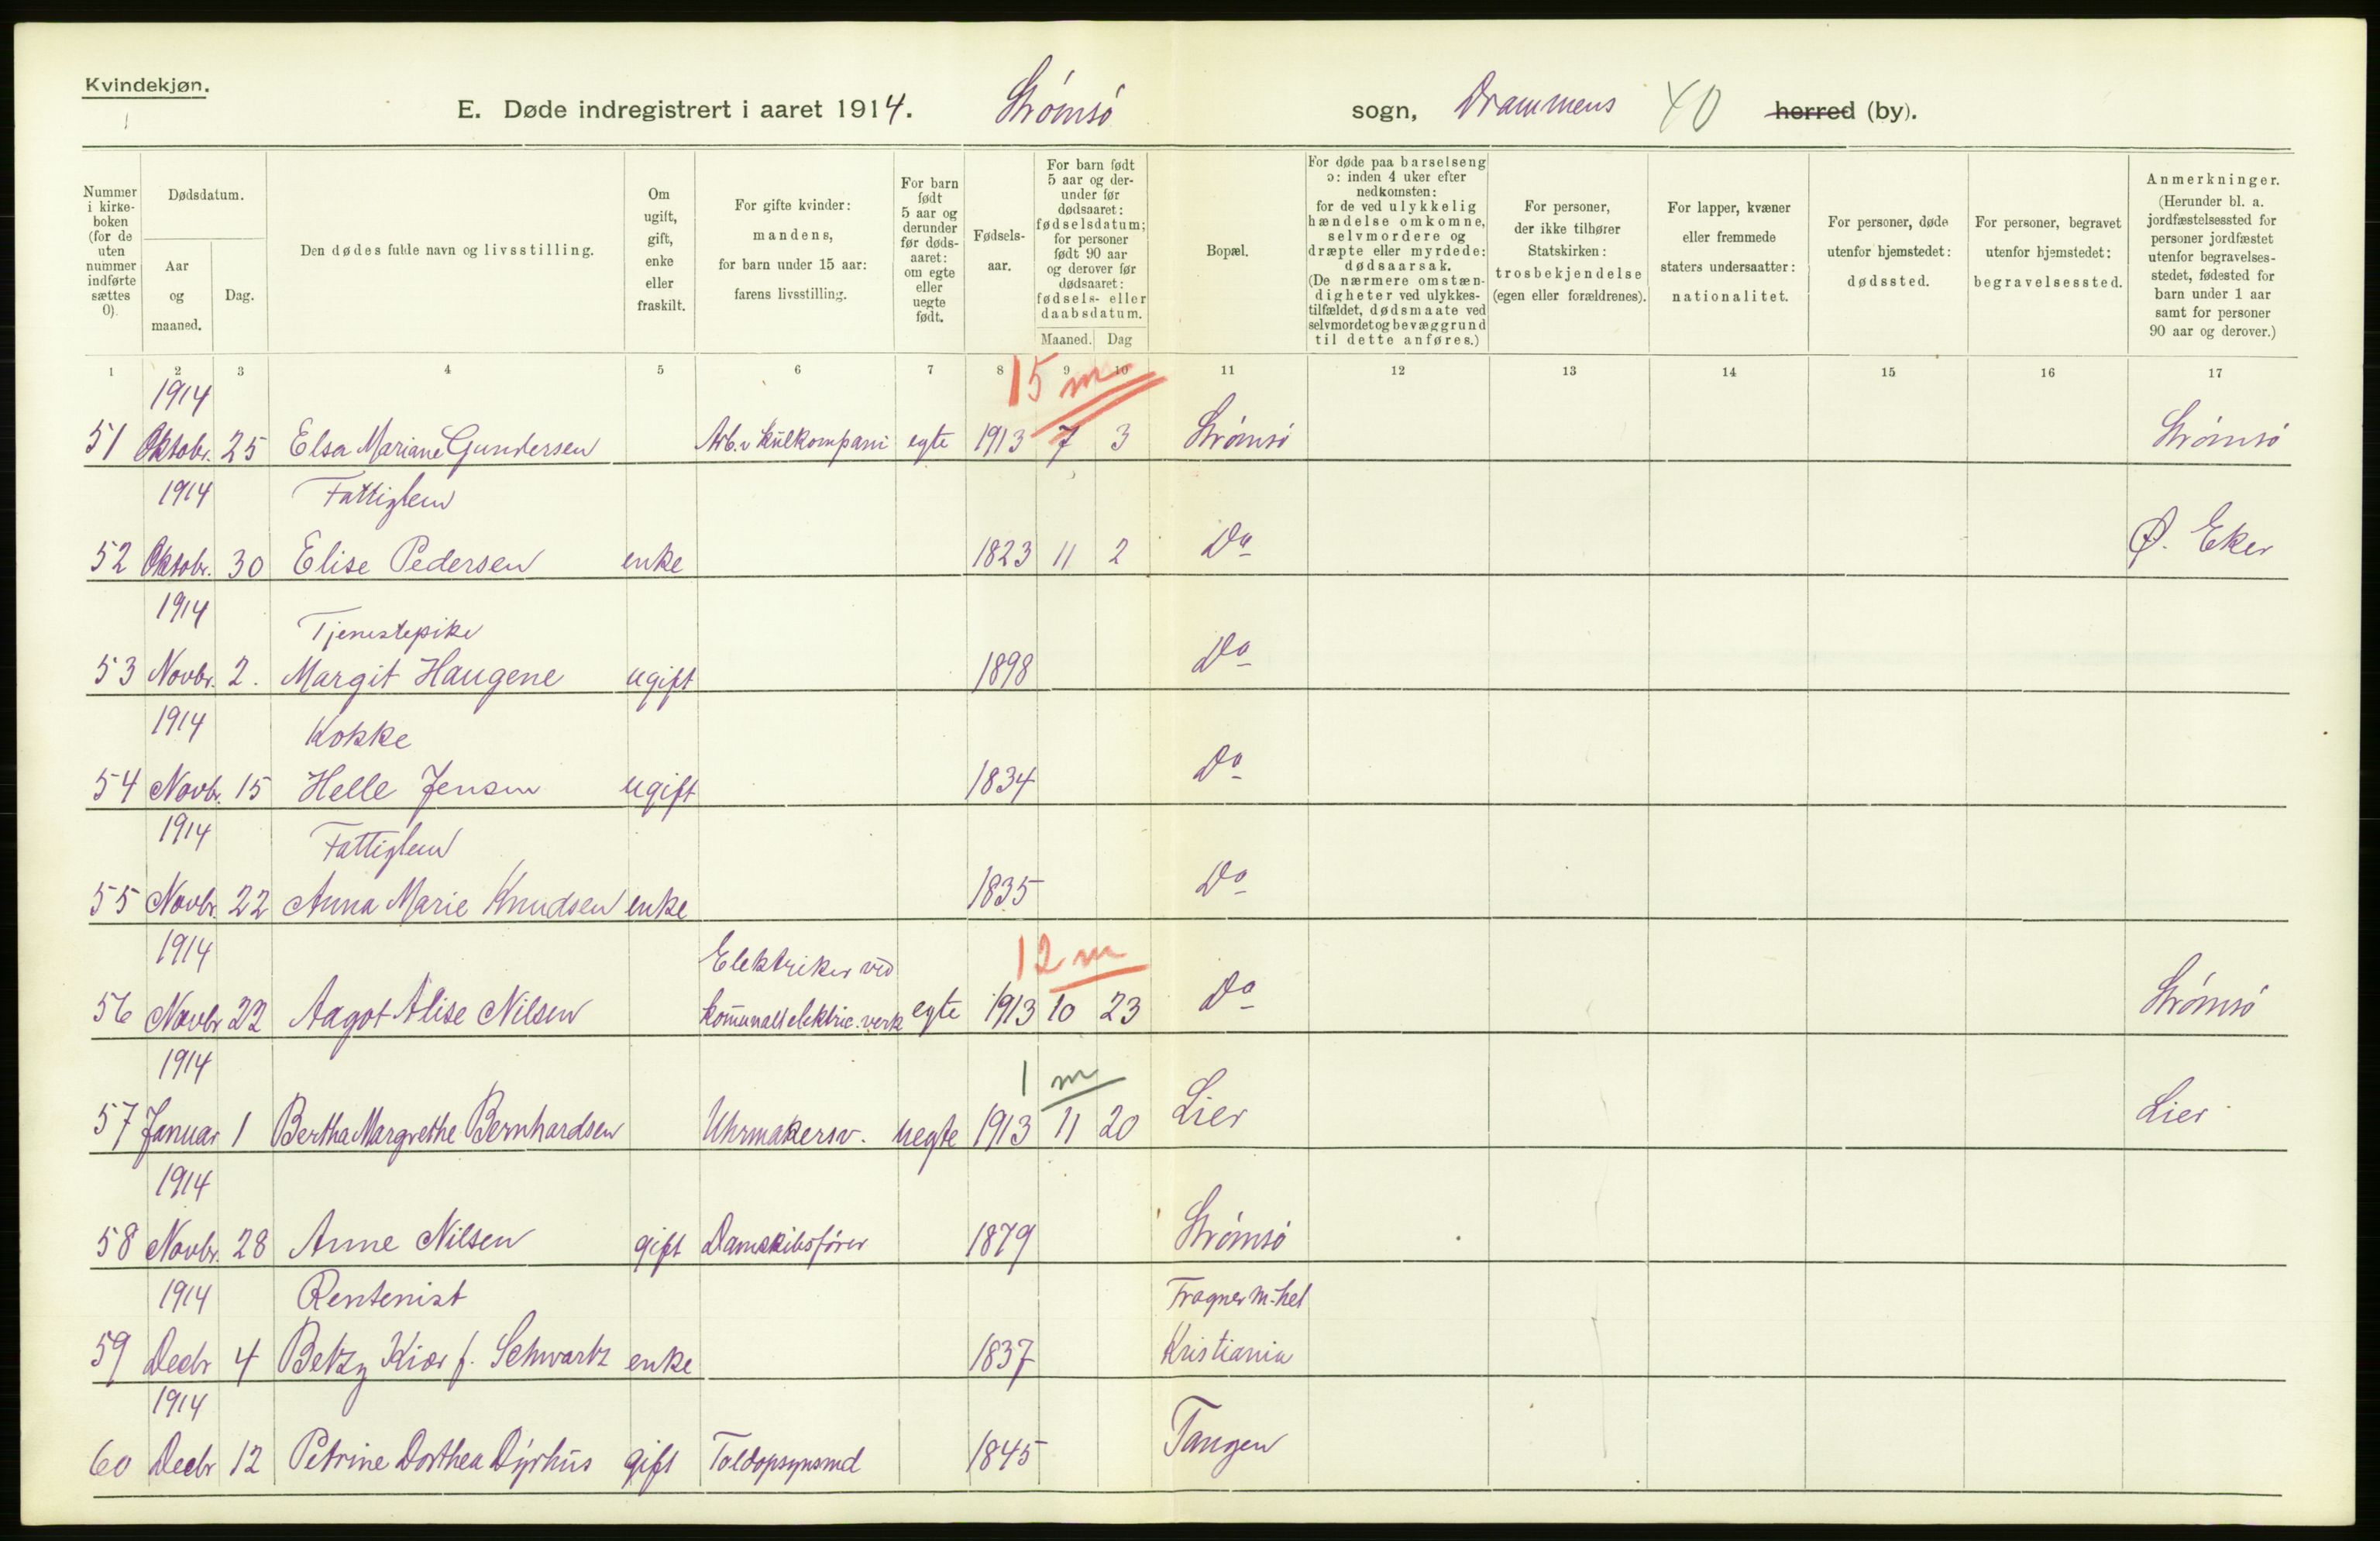 Kvindekjøn.
E. Døde indregistrert i aaret 1914. Strømsø sogn, Drammens 40 herred (by).
Nummer i kirke- boken (for de uten nummer indførte sættes 0).
Dødsdatum.
Aar og maaned.
Dag.
Den dødes fulde navn og livsstilling.
Om ugift, gift, enke eller fraskilt.
For gifte kvinder: mandens, for barn under 15 aar: farens livsstilling.
For barn født 5 aar og derunder før døds- aaret: om egte eller uegte født.
Fødsels- aar.
For barn født 5 aar og der- under før dødsaaret: fødselsdatum; for personer født 90 aar og derover før dødsaaret: fødsels- eller daabsdatum.
Maaned. Dag
Bopæl.
For døde paa barselseng ɔ: inden 4 uker efter nedkomsten: for de ved ulykkelig hændelse omkomne, selvmordere og dræpte eller myrdede: dødsaarsak. (De nærmere omstæn- digheter ved ulykkes- tilfældet, dødsmaate ved selvmordet og bevæggrund til dette anføres.)
For personer, der ikke tilhører Statskirken: trosbekjendelse (egen eller forældrenes).
For lapper, kvæner eller fremmede staters undersaatter: nationalitet.
For personer, døde utenfor hjemstedet: dødssted.
For personer, begravet utenfor hjemstedet: begravelsessted.
Anmerkninger. (Herunder bl. a. jordfæstelsessted for personer jordfæstet utenfor begravelses- stedet, fødested for barn under 1 aar samt for personer 90 aar og derover.)
1 2 3 4 5 6 7 8 9 10 11 12 13 14 15 16 17
1914 15 m
51 Oktobr. 25 Elsa Mariane Gundersen Arb. v kulkompani egte 1913 7 3 Strømsø Strømsø
1914 Fattiglem
52 Oktobr. 30 Elise Pedersen enke 1823 11 2 Do Ø. Eker
1914 Tjenestepike
53 Novbr. 2. Margit Haugene ugift 1898 Do
1914 Kokke
54 Novbr. 15 Helle Jensen ugift 1834 Do
1914 Fattiglem
55 Novbr. 22 Anna Marie Knudsen enke 1835 Do
1914 Elektriker ved 12 m
56 Novbr 22 Aagot Alise Nilsen komunalt elektric. verk egte 1913 10 23 Do Strømsø
1914 1 m
57 Januar 1 Bertha Margrethe Bernhardsen Uhrmakersv. uegte 1913 11 20 Lier Lier
1914
58 Novbr. 28 Anne Nilsen gift Damskibsfører 1879 Strømsø
1914 Rentenist Frogner m-hel
59 Decbr 4 Betzy Kiær f. Schwartz enke 1837 Kristiania
1914
60 Decbr 12 Petrine Dorthea Dyrhus gift Toldopsynsmd 1845 Tangen